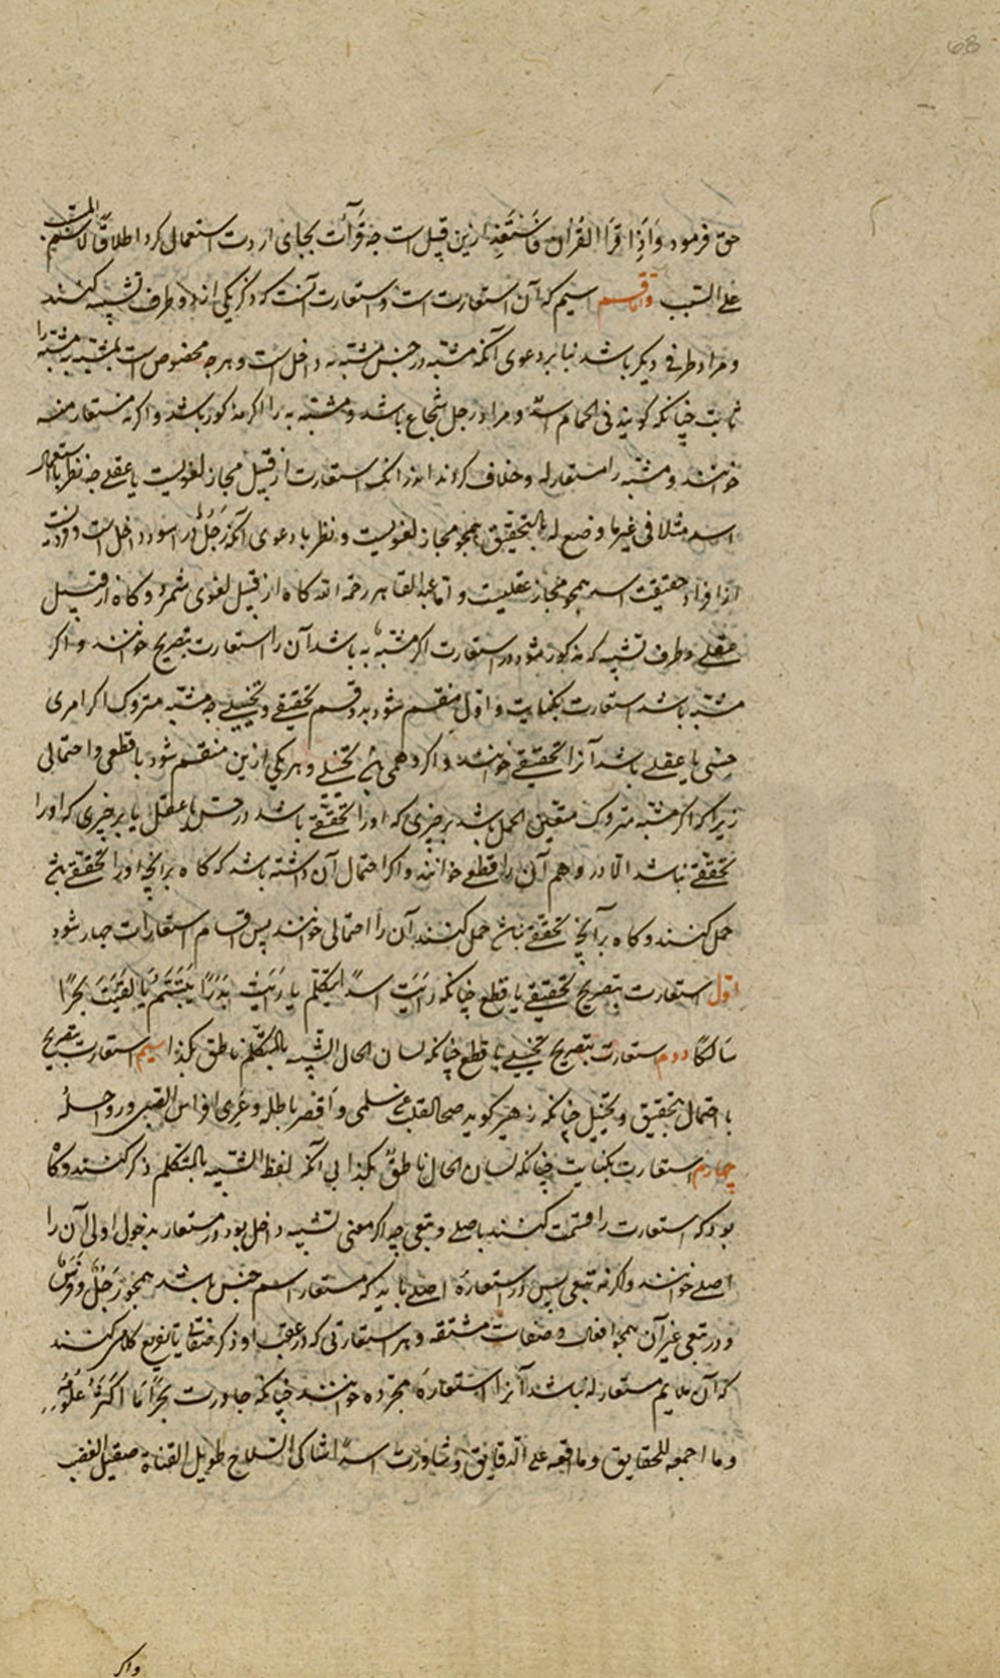 68
حق فرمود وَاِذَا قَرَأَ القُرآن فَاستَعِذ ازین قبیل است چه قَرَأت بجای اردت استعمال کرد اطلاقًا لاسم المسبب
علی السبب و اما قسم سیم که آن استعارت است و استعارت آنست که ذکر یکی از دو طرف تشبیه کنند
و مراد طرفی دیگر باشد بنابر دعوی آنکه مشبه در جنس مشبه به داخل است و هرچه مخصوص است بمشبه به مشبه را
ثابت چنانکه کویند فی الحمام اسدٌ و مراد رجل شجاع باشد و مشبه به را اکر مذکور باشد و اکر نه مستعار منه
خوانند و مشبه را مستعار له و خلاف کردند اندر آنکه استعارت از قبیل مجاز لغویست یا عقلی چه نظر باستعمال
اسد مثلا فی غیر ما وضع له بالتحقیق همچو مجاز لغویست و نظر با دعوی آنکه رَجُل در اسود داخل است و
از افراد حقیقت اسد همچو مجاز عقلیست و اما عبد القاهر رحمه الله کاه از قبیل لغوی شمرد و کاه از قبیل
عقلی و طرف تشبیه که مذکور شود در استعارت اکر مشبه به باشد آن را استعارت بتصریح خوانند و اکر
مشبه باشد استعارت بکنایت و اول منقسم شود بدو قسم تحقیقی و تخییلی چه مشبه متروک اکر امری
حسی یا عقلی باشد آنرا تحقیقی خوانند و اکر وهمی باشد تخییلی و هر یکی ازین منقسم شود با قطعی و احتمالی
زیرا که اکر مشبه متروک متعین الحمل باشد بر چیزی که او را تحققی باشد در حس یا عقل یا بر چیزی که او را
تحققی نباشد الّا در وهم آن را قطعی خوانند و اکر احتمال آن داشته باشد که کاه بر آنچه او را تحققی باشد
حمل کنند و کاه بر آنچه تحققی نباشد حمل کنند آن را احتمالی خوانند پس اقسام استعارات چهار شود
اول استعارت بتصریح تحقیقی با قطع چنانکه رَایتُ اسدًا یتکلم یا رَایتُ بَدرًا یَتَبَسَّمُ یا لَقیتُ بَحرًا
سَالکًا دوم استعارت بتصریح تخییلی با قطع چنانکه لسان الحال الشبیه بالمتکلم ناطق بکذا سیم استعارت بتصریح
با احتمال تحقیق و تخییل چنانکه زهیر کوید صحا القلب عن سلمی و اقصر باطله و عُرّی افراس الصبی و رواحلهُ
چهارم استعارت بکنایت چنانکه لسان الحال ناطقٌ بکذا بی آنکه لفظ الشبیه بالمتکلم ذکر کنند و کاه
بود که استعارت را قسمت کنند باصلی و تبعی چه اکر معنی تشبیه داخل بود در مستعار بدخول اولی آن را
اصلی خوانند و اکر نه تبعی پس در استعارهٔ اصلی باید که مستعار اسم جنس باشد همچو رَجُلٌ و فَرَسٌ
و در تبعی غیر آن همچو افعال و صفات مشتقه و هر استعارتی که در عقب او ذکر صفتی یا تفریع کلامی کنند
که آن ملایم مستعار له باشد آنرا استعارهٔ مجرده خوانند چنانکه جاورت بحرًا مَا اکثرَ عُلُومَهُ
و ما اجمعه للحقایق و ما اوقعه علی الدقایق و شاورت اسدًا شاکی السلاح طویل القناة صقیل العضب
و اکر